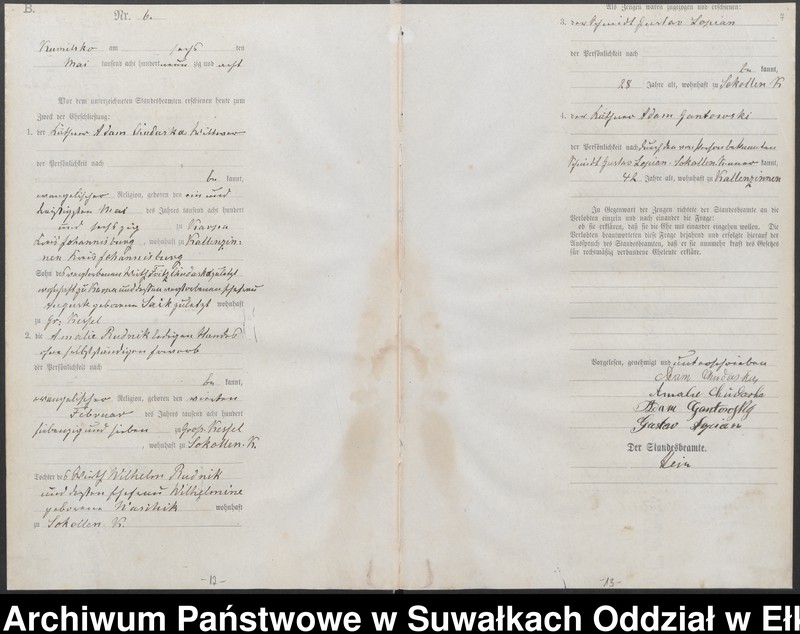 B.
Nr. 6.
Kumilsko am sechs ten
Mai tausend acht hundert neun zig und acht
Vor dem unterzeichneten Standesbeamten erschienen heute zum
Zweck der Eheschließung:
1. der Käthner Adam Chudaska Wittwer
der Persönlichkeit nach
be kannt,
evangelischer Religion, geboren den ein und
dreißigsten Mai des Jahres tausend acht hundert
und sechszig zu Karpa
Kreis Johannisburg, wohnhaft zu Kallenzin-
nen Kreis Johannisburg
Sohn des verstorbenen Wirths Fritz Chudaska zuletzt
wohnhaft zu Karpa und dessen verstorbenen Ehefrau
geborene zuletzt wohnhaft
zu Gr. Kessel
2. die Amalie Rudnik ledigen Standes
ohne selbstständigen Erwerb
der Persönlichkeit nach
be kannt,
evangelischer Religion, geboren den vierten
Februar des Jahres tausend acht hundert
siebenzig und sieben zu Groß Kessel
, wohnhaft zu Sokollen. K.
Tochter des Wirth Wilhelm Rudnik
und dessen Ehefrau Wilhelmine
geborene wohnhaft
zu Sokollen. K.
-12-
Als Zeugen waren zugezogen und erschienen:
3. der Schmidt Gustav Lopian
der Persönlichkeit nach
be kannt,
28 Jahre alt, wohnhaft zu Sokollen K.
4. der Käthner Adam Gantowski
der Persönlichkeit nach durch den von Person bekannten
Schmidt Gustav Lopian-Sokollen kannt,
42 Jahre alt, wohnhaft zu Kallenzinnen
In Gegenwart der Zeugen richtete der Standesbeamte an die
Verlobten einzeln und nach einander die Frage:
ob sie erklären, daß sie die Ehe mit einander eingehen wollen. Die
Verlobten beantworteten diese Frage bejahend und erfolgte hierauf der
Ausspruch des Standesbeamten, daß er sie nunmehr kraft des Gesetzes
für rechtmäßig verbundene Eheleute erkläre.
Vorgelesen, genehmigt und unterschrieben
Adam Chudaska
Amalie Chudaska
Adam Gantowski
Gustav Lopian
Der Standesbeamte.
-13-
Archiwum Państwowe w Suwałkach Oddział w Ełk